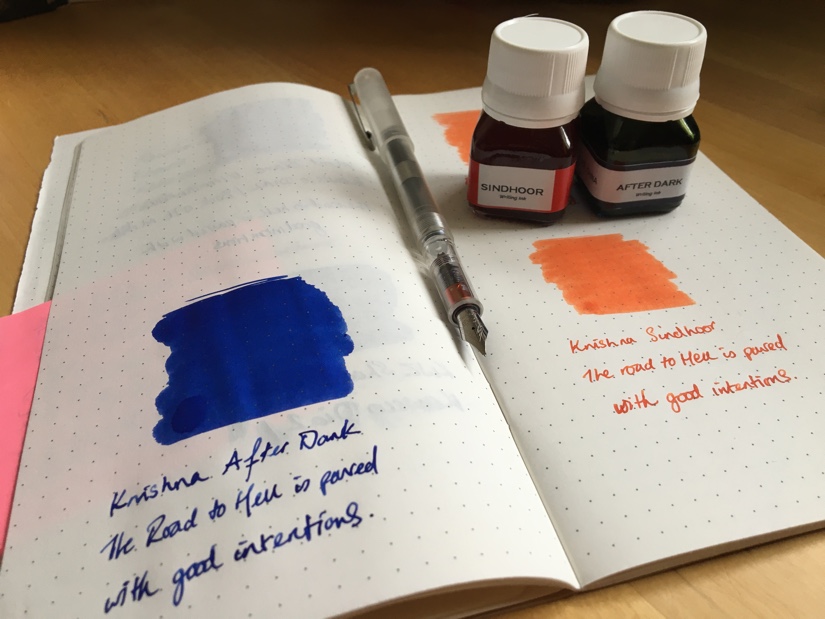 SINDHOOR
Writing Ink
AFTER DARK
Writing Ink
Krishna After Dark
The Road to Hell is paved
with good intentions.
Krishna Sindhoor
The road to Hell is paved
with good intentions.